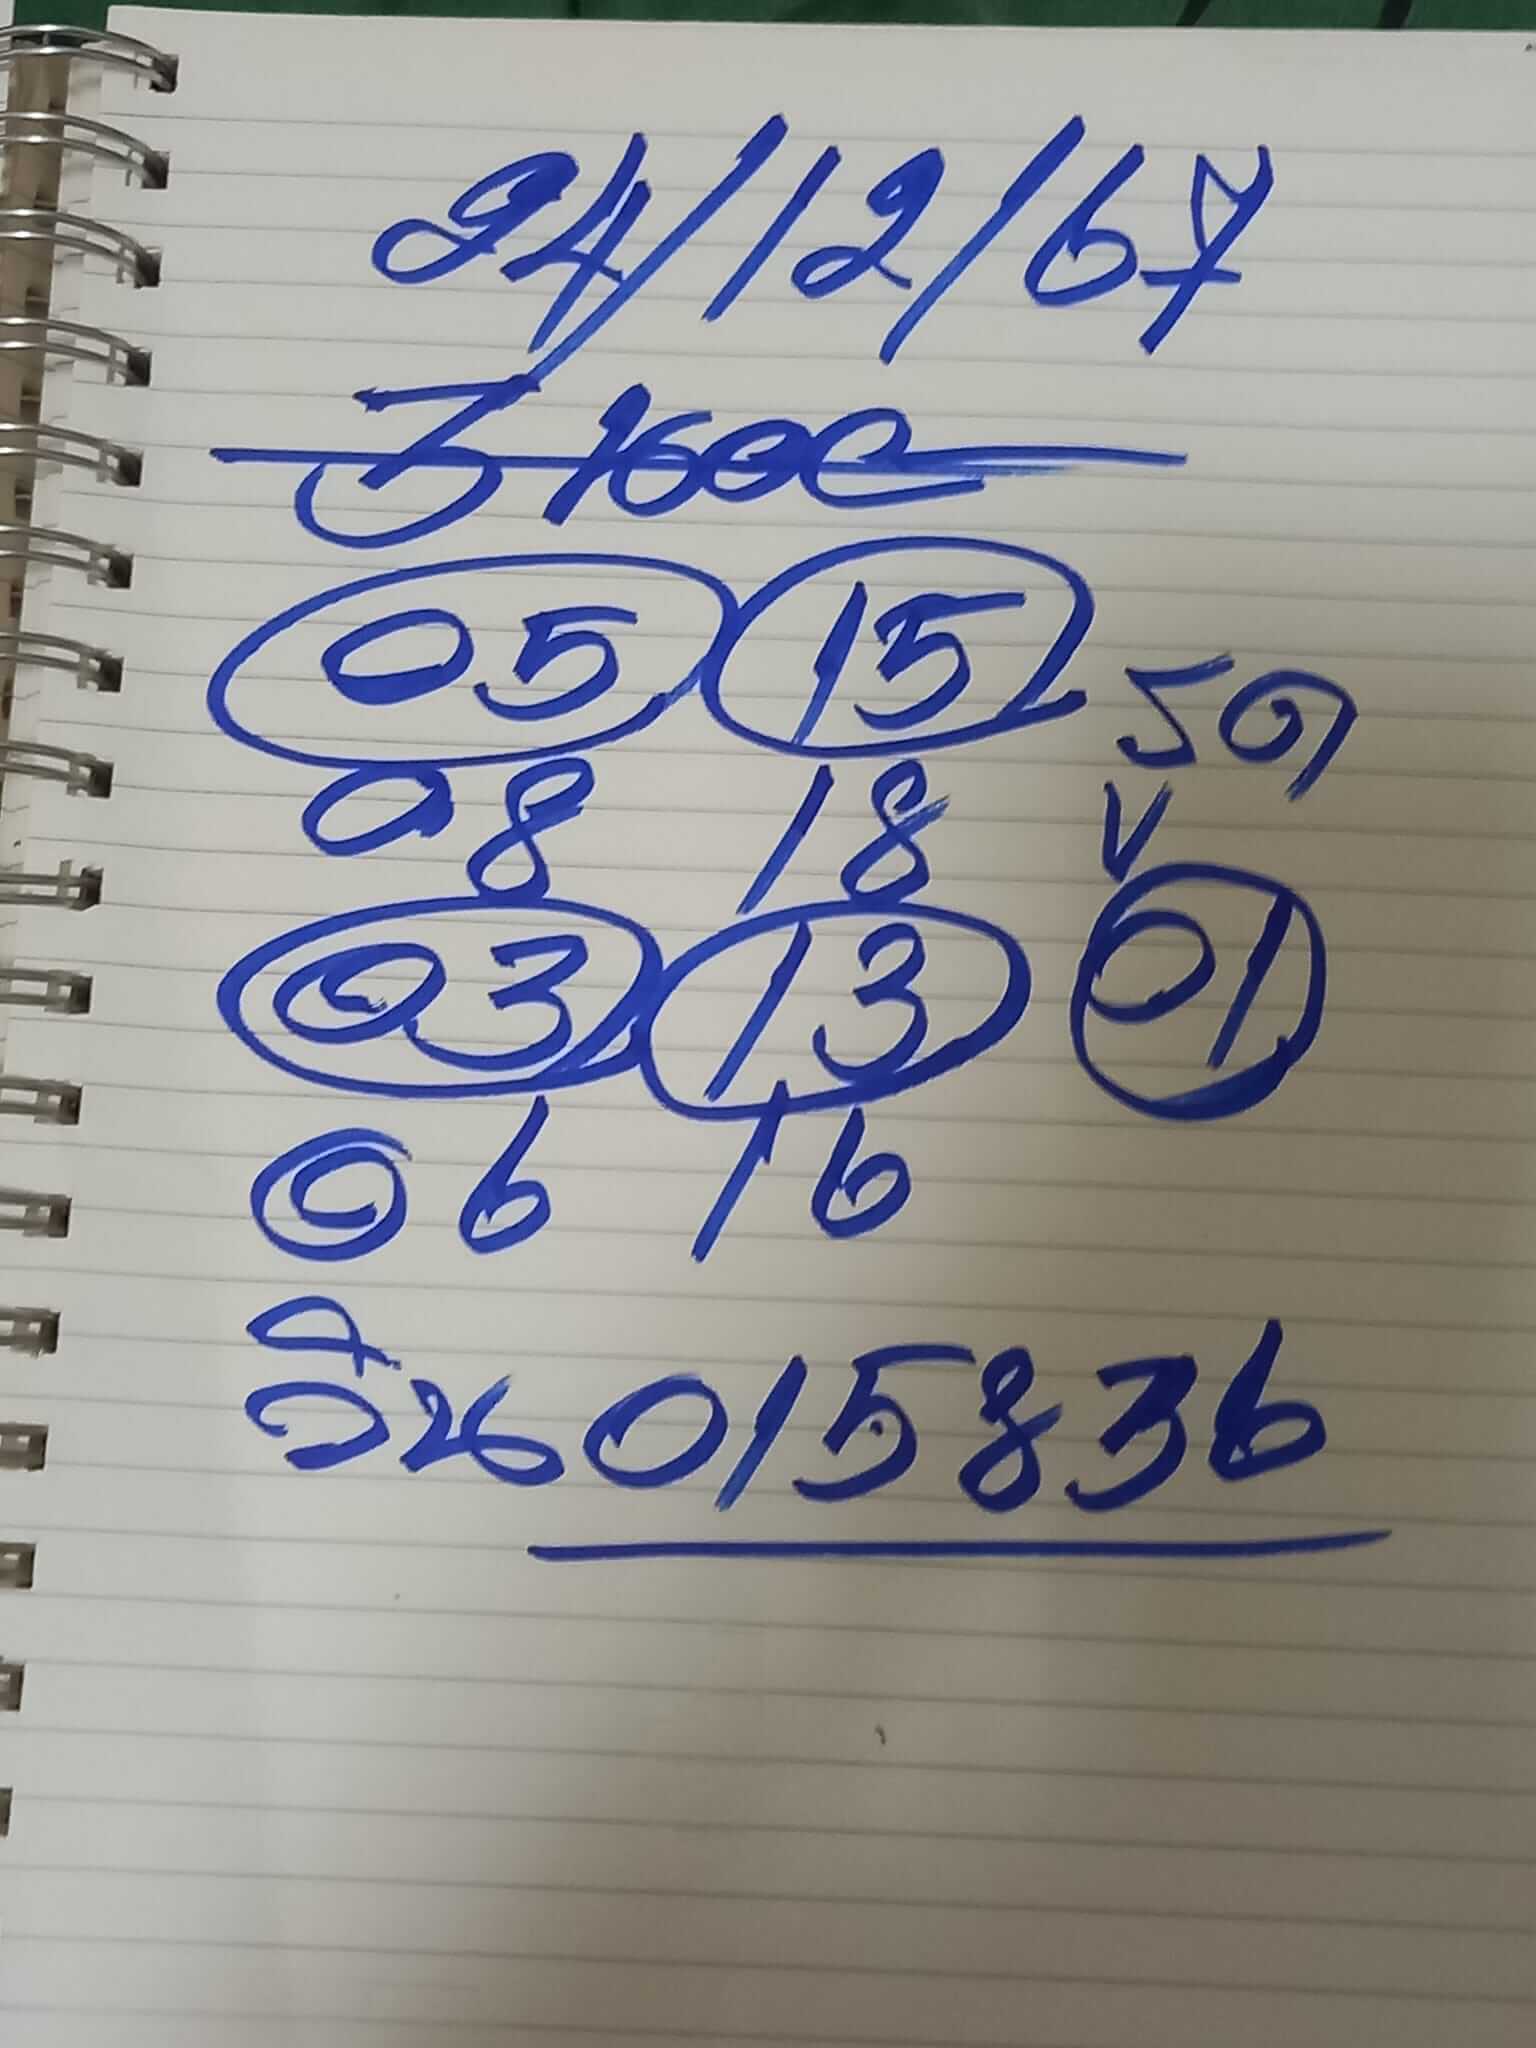 24/12/67
05 15
รูด
08 18
03 13 01
06 16
วิน 015836